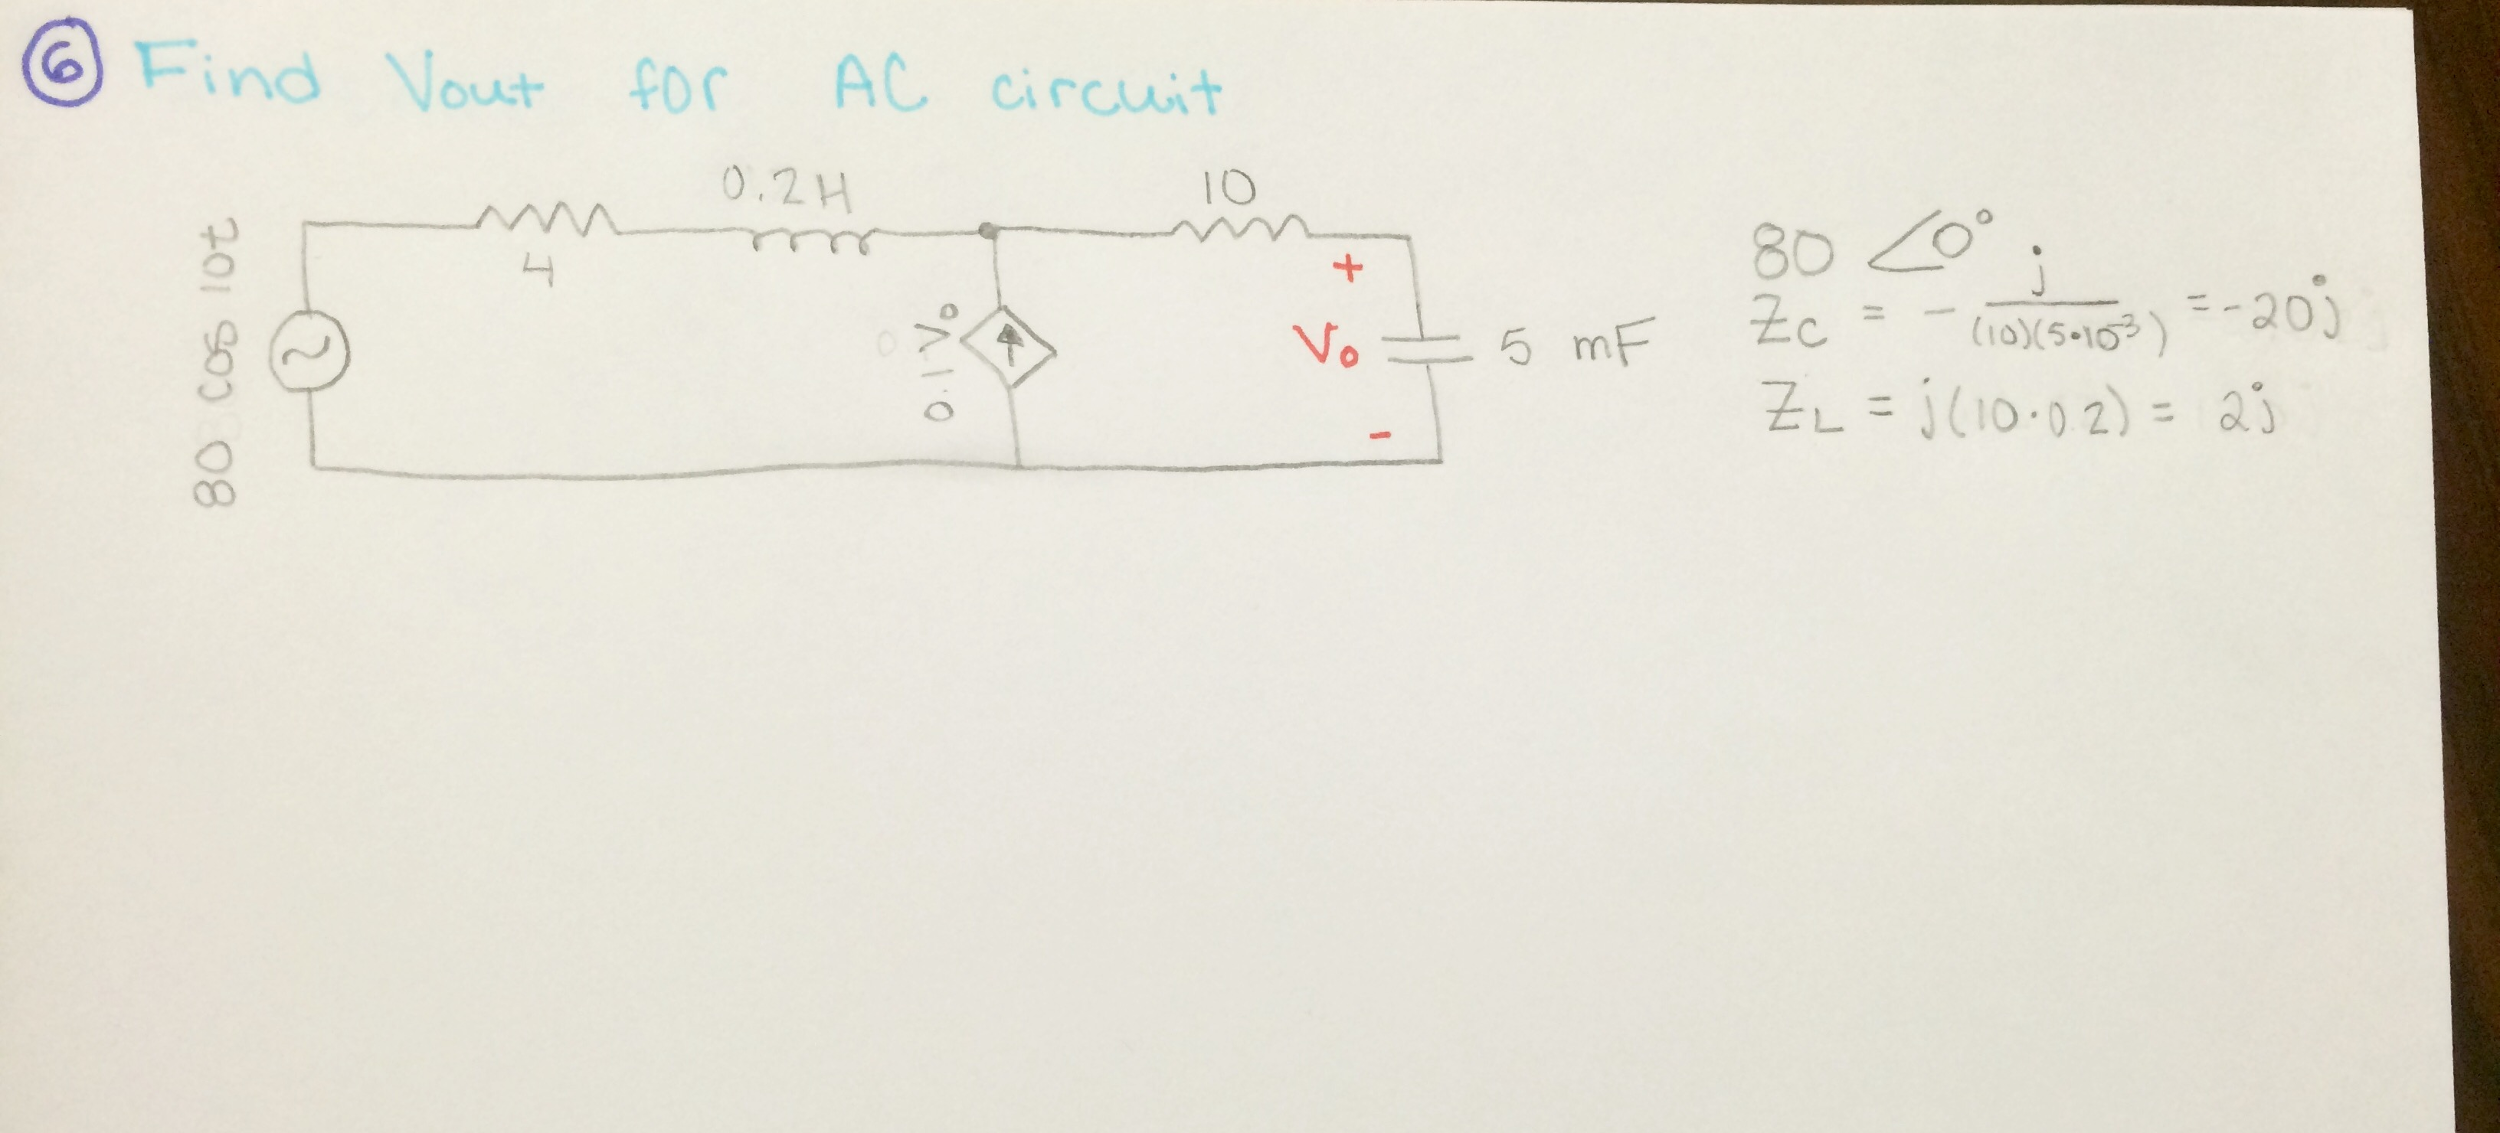 6 Find Vout for AC circuit
0.2H
10
4
80 cos 10t
0.1 Vo
+
Vo
-
5 mF
80 ∠0°
Zc = - j/((10)(5•10^-3)) = -20j
ZL = j(10·0.2) = 2j